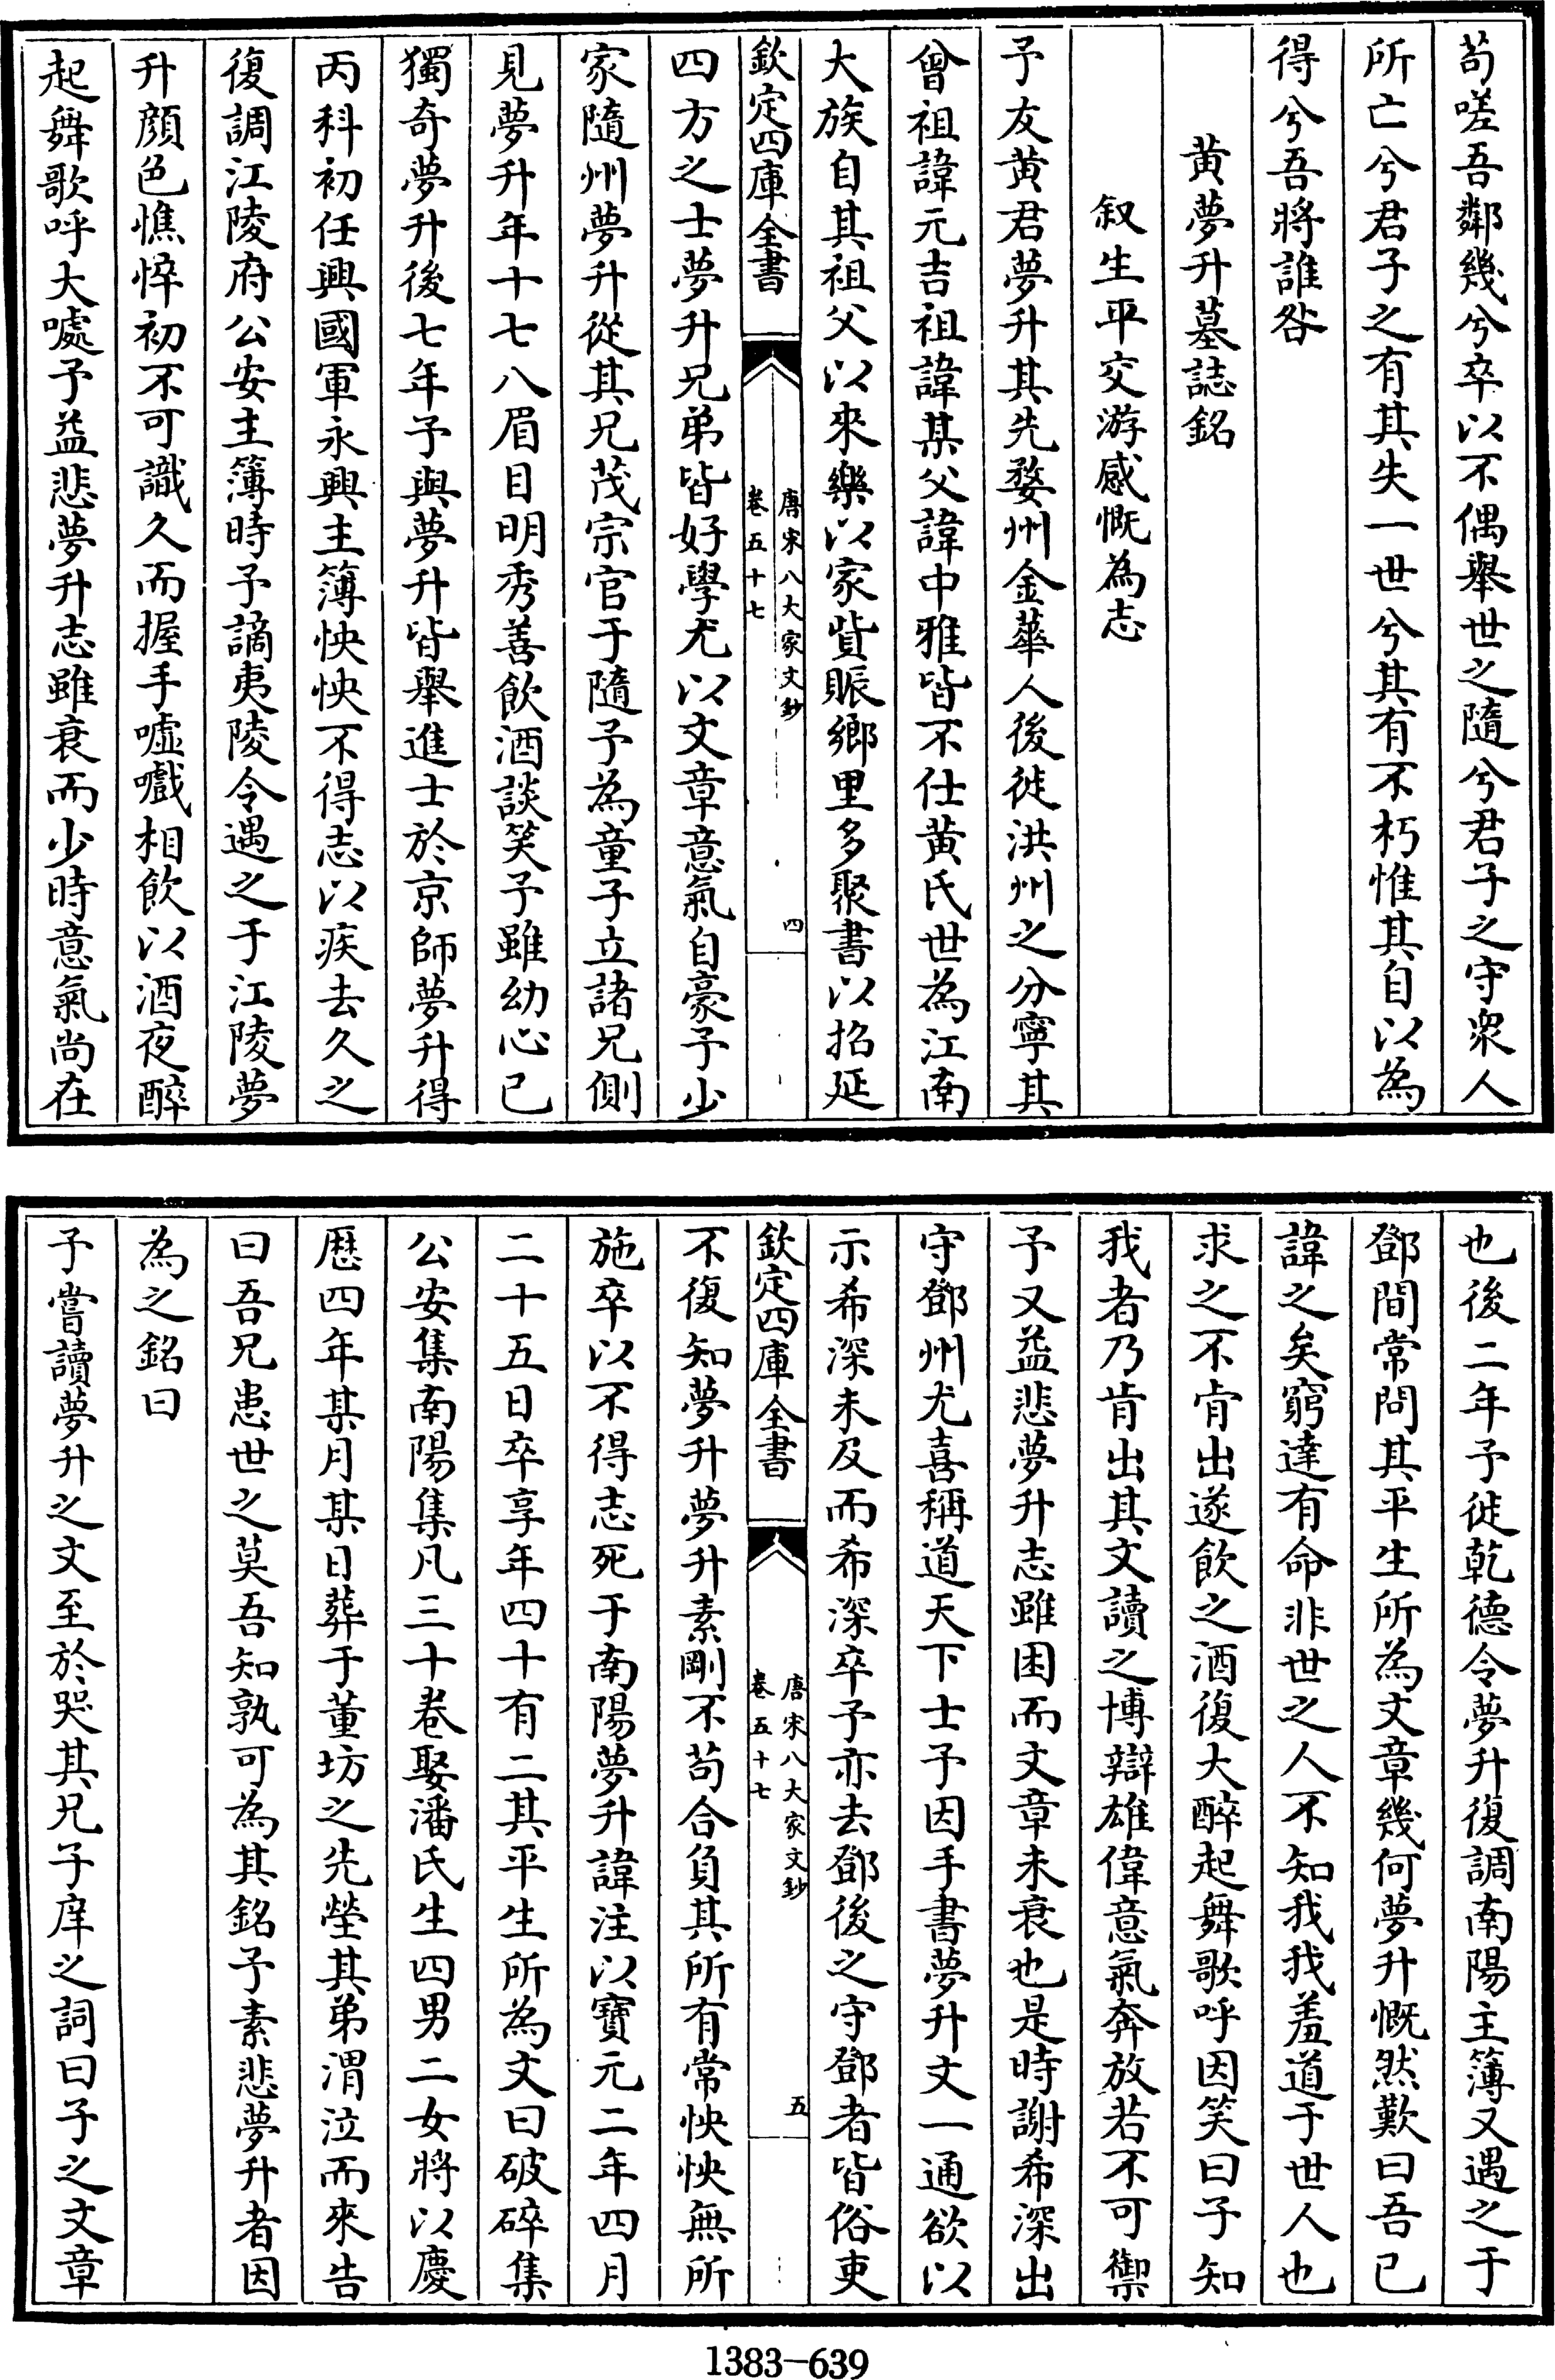 苟嗟吾鄰幾兮卒以不偶舉世之隨兮君子之守衆人
所亡兮君子之有其失一世兮其有不朽惟其自以為
得兮吾將誰咎
黄夢升墓誌銘
叙生平交游感慨為志
予友黄君夢升其先婺州金華人後徙洪州之分寧其
曾祖諱元吉祖諱某父諱中雅皆不仕黄氏世為江南
大族自其祖父以來樂以家貲賑鄉里多聚書以招延
欽定四庫全書
唐宋八大家文鈔
卷五十七
四
四方之士夢升兄弟皆好學尤以文章意氣自豪予少
家隨州夢升從其兄茂宗官于隨予為童子立諸兄側
見夢升年十七八眉目明秀善飲酒談笑予雖幼心已
獨奇夢升後七年予與夢升皆舉進士於京師夢升得
丙科初任興國軍永興主簿怏怏不得志以疾去久之
復調江陵府公安主簿時予謫夷陵令遇之于江陵夢
升顔色憔悴初不可識久而握手噓嚱相飲以酒夜醉
起舞歌呼大噱予益悲夢升志雖衰而少時意氣尚在
也後二年予徙乾德令夢升復調南陽主簿又遇之于
鄧間常問其平生所為文章幾何夢升慨然歎曰吾已
諱之矣窮達有命非世之人不知我我羞道于世人也
求之不肯出遂飲之酒復大醉起舞歌呼因笑曰子知
我者乃肯出其文讀之博辯雄偉意氣奔放若不可禦
予又益悲夢升志雖困而文章未衰也是時謝希深出
守鄧州尤喜稱道天下士予因手書夢升文一通欲以
示希深未及而希深卒予亦去鄧後之守鄧者皆俗吏
欽定四庫全書
唐宋八大家文鈔
卷五十七
五
不復知夢升夢升素剛不苟合負其所有常怏怏無所
施卒以不得志死于南陽夢升諱注以寶元二年四月
二十五日卒享年四十有二其平生所為文曰破碎集
公安集南陽集凡三十卷娶潘氏生四男二女將以慶
厯四年某月某日葬于董坊之先塋其弟渭泣而來告
曰吾兄患世之莫吾知孰可為其銘予素悲夢升者因
為之銘曰
予嘗讀夢升之文至於哭其兄子庠之詞曰子之文章
1383-639